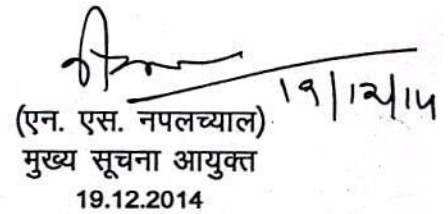 19/12/14
(एन. एस. नपलच्याल)
मुख्य सूचना आयुक्त
19.12.2014